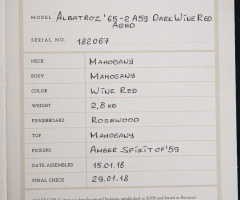 MODEL ALBATROZ '65-2 A59 DARK WINE RED
AGED
SERIAL NO. 182067
NECK MAHOGANY
BODY MAHOGANY
COLOR WINE RED
WEIGHT 2,8 KG
FINGERBOARD ROSEWOOD
TOP MAHOGANY
PICKUPS AMBER SPIRIT OF '59
DATE ASSEMBLED 15.01.18
FINAL CHECK 29.01.18